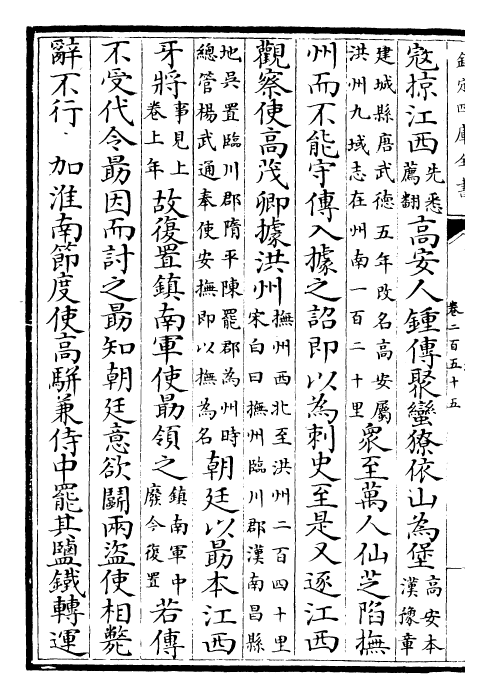 欽定四庫全書
卷二百五十五
寇掠江西先悉薦翻高安人鍾傳聚蠻獠依山為堡高安本漢豫章
建城縣唐武德五年改名高安屬洪州九域志在州南一百二十里衆至萬人仙芝陷撫
州而不能守傳入據之詔即以為刺史至是又逐江西
觀察使高茂卿據洪州撫州西北至洪州二百四十里宋白曰撫州臨川郡漢南昌縣
地吳置臨川郡隋平陳罷郡為州時總管楊武通奉使安撫即以撫為名朝廷以勗本江西
牙將事見上卷上年故復置鎮南軍使勗領之鎮南軍中廢今復置若傳
不受代令勗因而討之勗知朝廷意欲鬭兩盜使相斃
辭不行、加淮南節度使高駢兼侍中罷其鹽鐵轉運